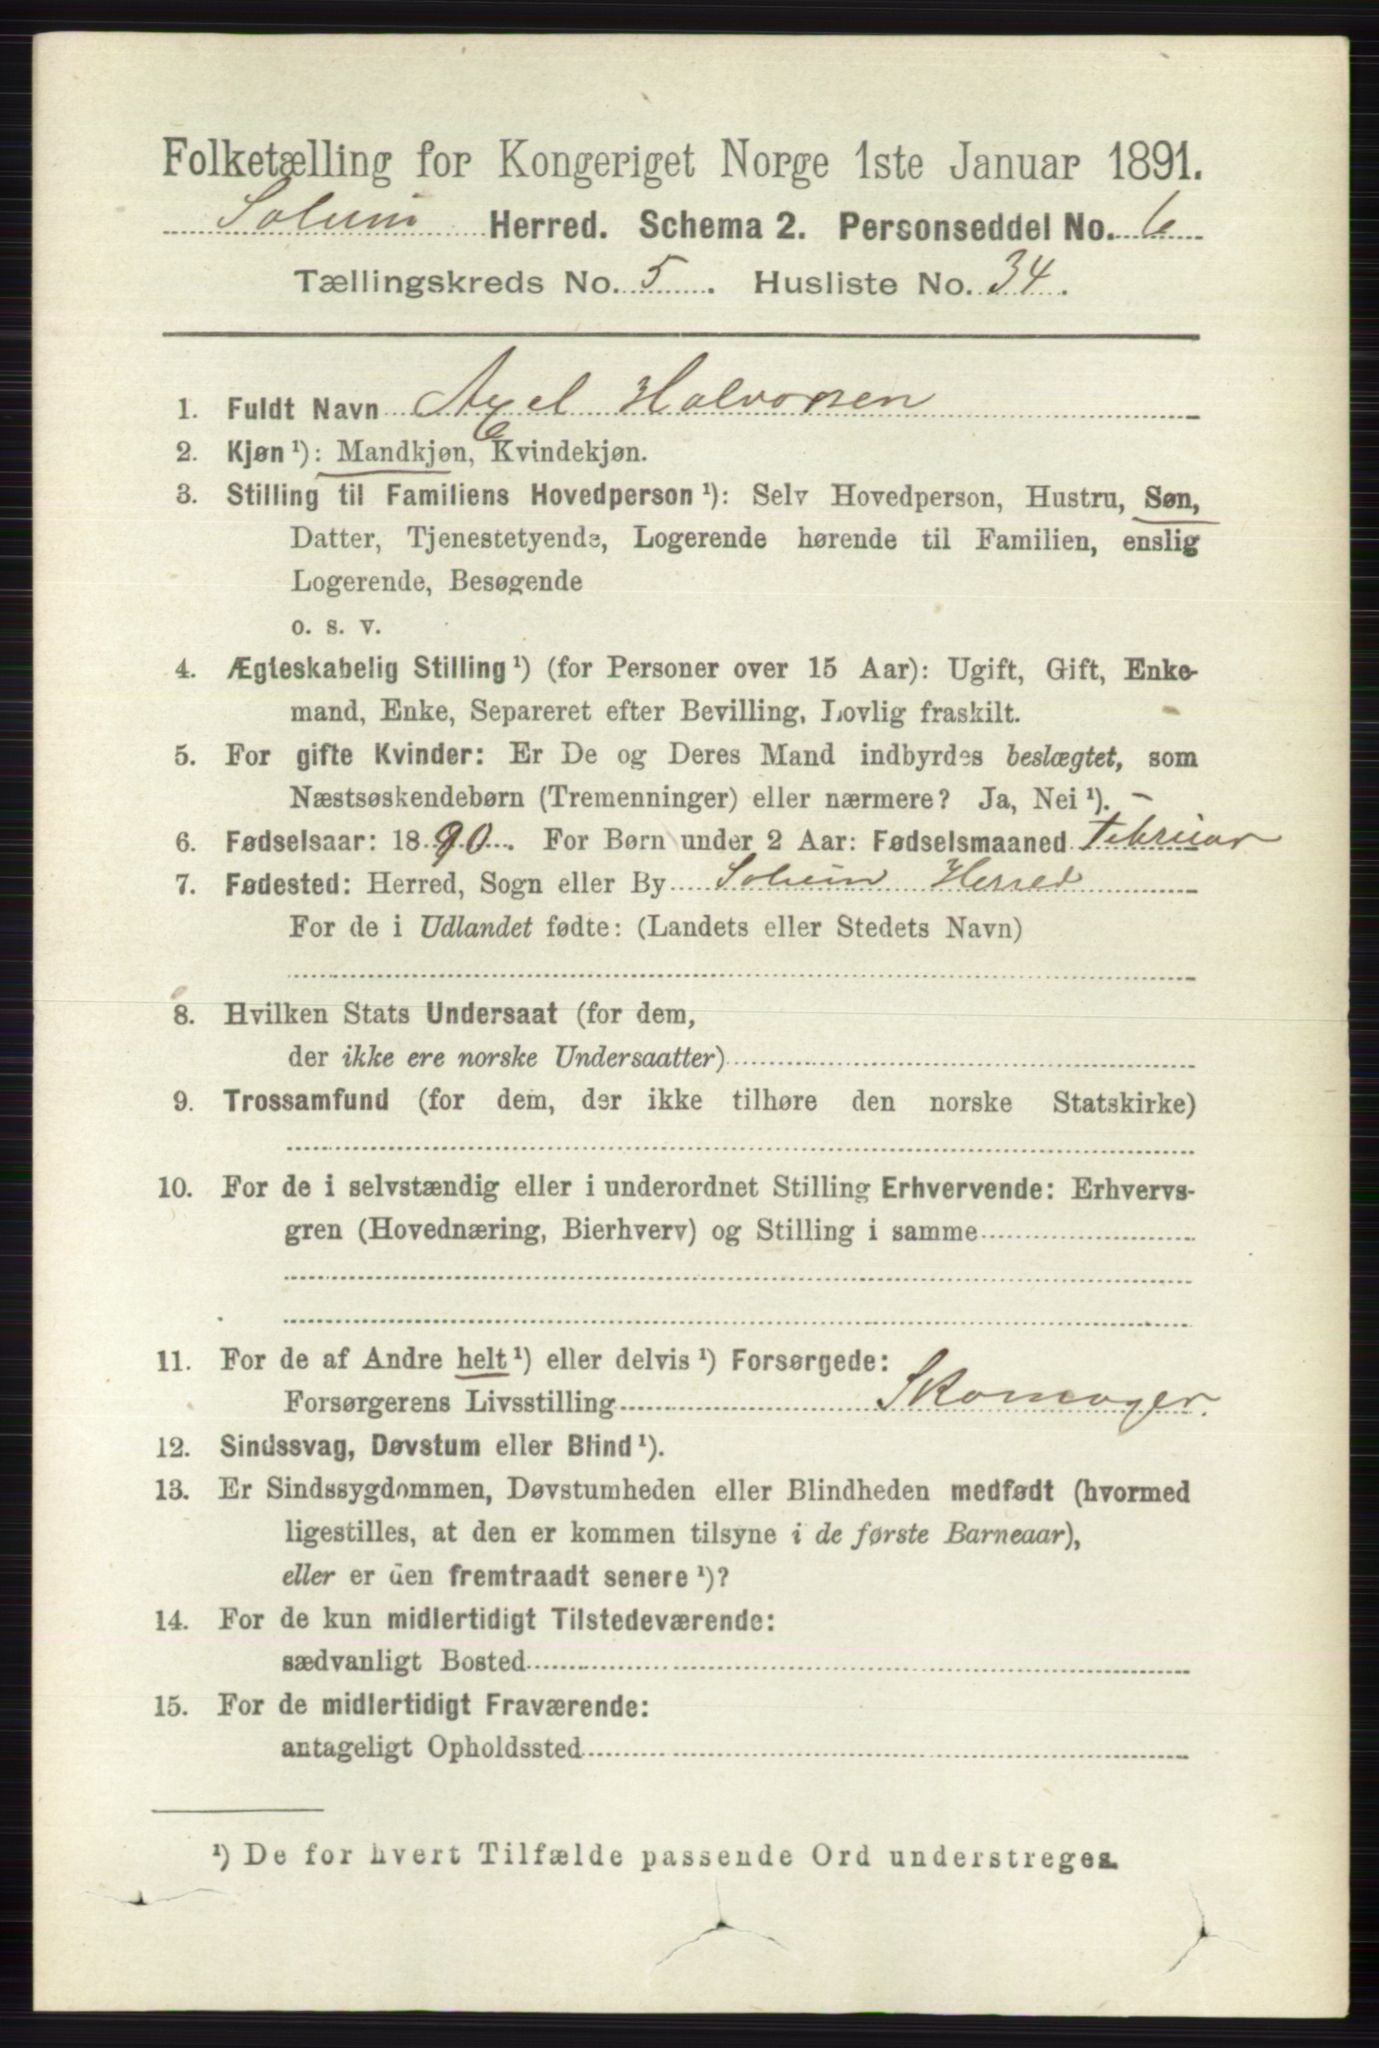 Folketælling for Kongeriget Norge 1ste Januar 1891.
Solum Herred. Schema 2. Personseddel No. 6
Tællingskreds No. 5. Husliste No. 34.
1. Fuldt Navn Axel Halvorsen
2. Kjøn ¹): Mandkjøn, Kvindekjøn.
3. Stilling til Familiens Hovedperson ¹): Selv Hovedperson, Hustru, Søn,
Datter, Tjenestetyende, Logerende hørende til Familien, enslig
Logerende, Besøgende
o. s. v.
4. Ægteskabelig Stilling ¹) (for Personer over 15 Aar): Ugift, Gift, Enke-
mand, Enke, Separeret efter Bevilling, Lovlig fraskilt.
5. For gifte Kvinder: Er De og Deres Mand indbyrdes beslægtet, som
Næstsøskendebørn (Tremenninger) eller nærmere? Ja, Nei ¹).
6. Fødselsaar: 1890. For Børn under 2 Aar: Fødselsmaaned Februar
7. Fødested: Herred, Sogn eller By Solum Herred
For de i Udlandet fødte: (Landets eller Stedets Navn)
8. Hvilken Stats Undersaat (for dem,
der ikke ere norske Undersaatter)
9. Trossamfund (for dem, der ikke tilhøre den norske Statskirke)
10. For de i selvstændig eller i underordnet Stilling Erhvervende: Erhvervs-
gren (Hovednæring, Bierhverv) og Stilling i samme
11. For de af Andre helt ¹) eller delvis ¹) Forsørgede:
Forsørgerens Livsstilling Skomager.
12. Sindssvag, Døvstum eller Blind ¹).
13. Er Sindssygdommen, Døvstumheden eller Blindheden medfødt (hvormed
ligestilles, at den er kommen tilsyne i de første Barneaar),
eller er den fremtraadt senere ¹)?
14. For de kun midlertidigt Tilstedeværende:
sædvanligt Bosted
15. For de midlertidigt Fraværende:
antageligt Opholdssted
¹) De for hvert Tilfælde passende Ord understreges.